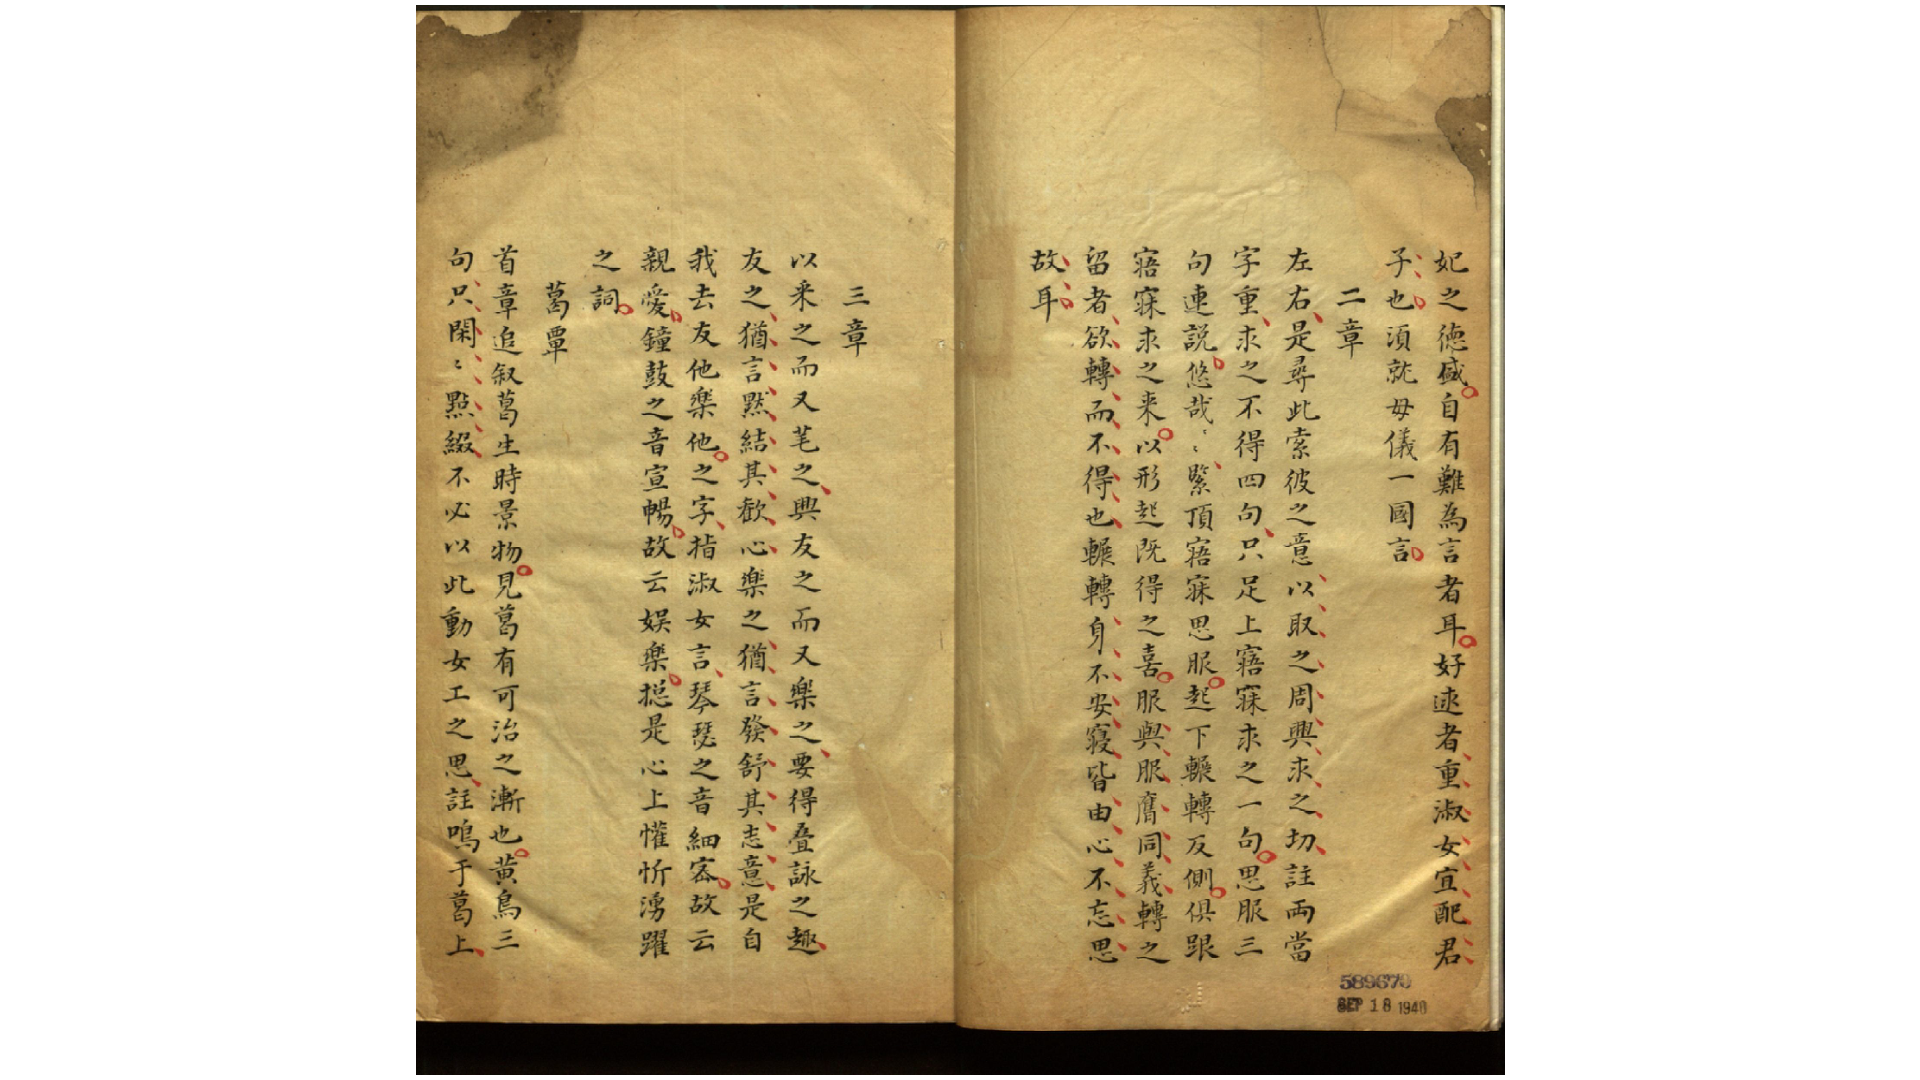 妃之德盛自有難為言者耳好逑者重淑女宜配君
子也須就母儀一國言
二章
左右是尋此索彼之意以取之周興求之切註両當
字重求之不得四句只足上寤寐求之一句思服三
句連説悠哉〻〻緊頂寤寐思服起下輾轉反側俱跟
寤寐求之来以形起既得之喜服與服膺同義轉之
留者欲轉而不得也輾轉身不安寢皆由心不忘思
故耳
三章
以采之而又芼之興友之而又樂之要得叠詠之趣
友之猶言黙結其歡心楽之猶言發舒其志意是自
我去友他楽他之字指淑女言琴瑟之音細宻故云
親愛鐘鼓之音宣暢故云娯楽揔是心上懽忻湧躍
之詞
葛覃
首章追叙葛生時景物見葛有可治之漸也黄鳥三
句只閑〻點綴不必以此動女工之思註鳴于葛上
589670
SEP 18 1940